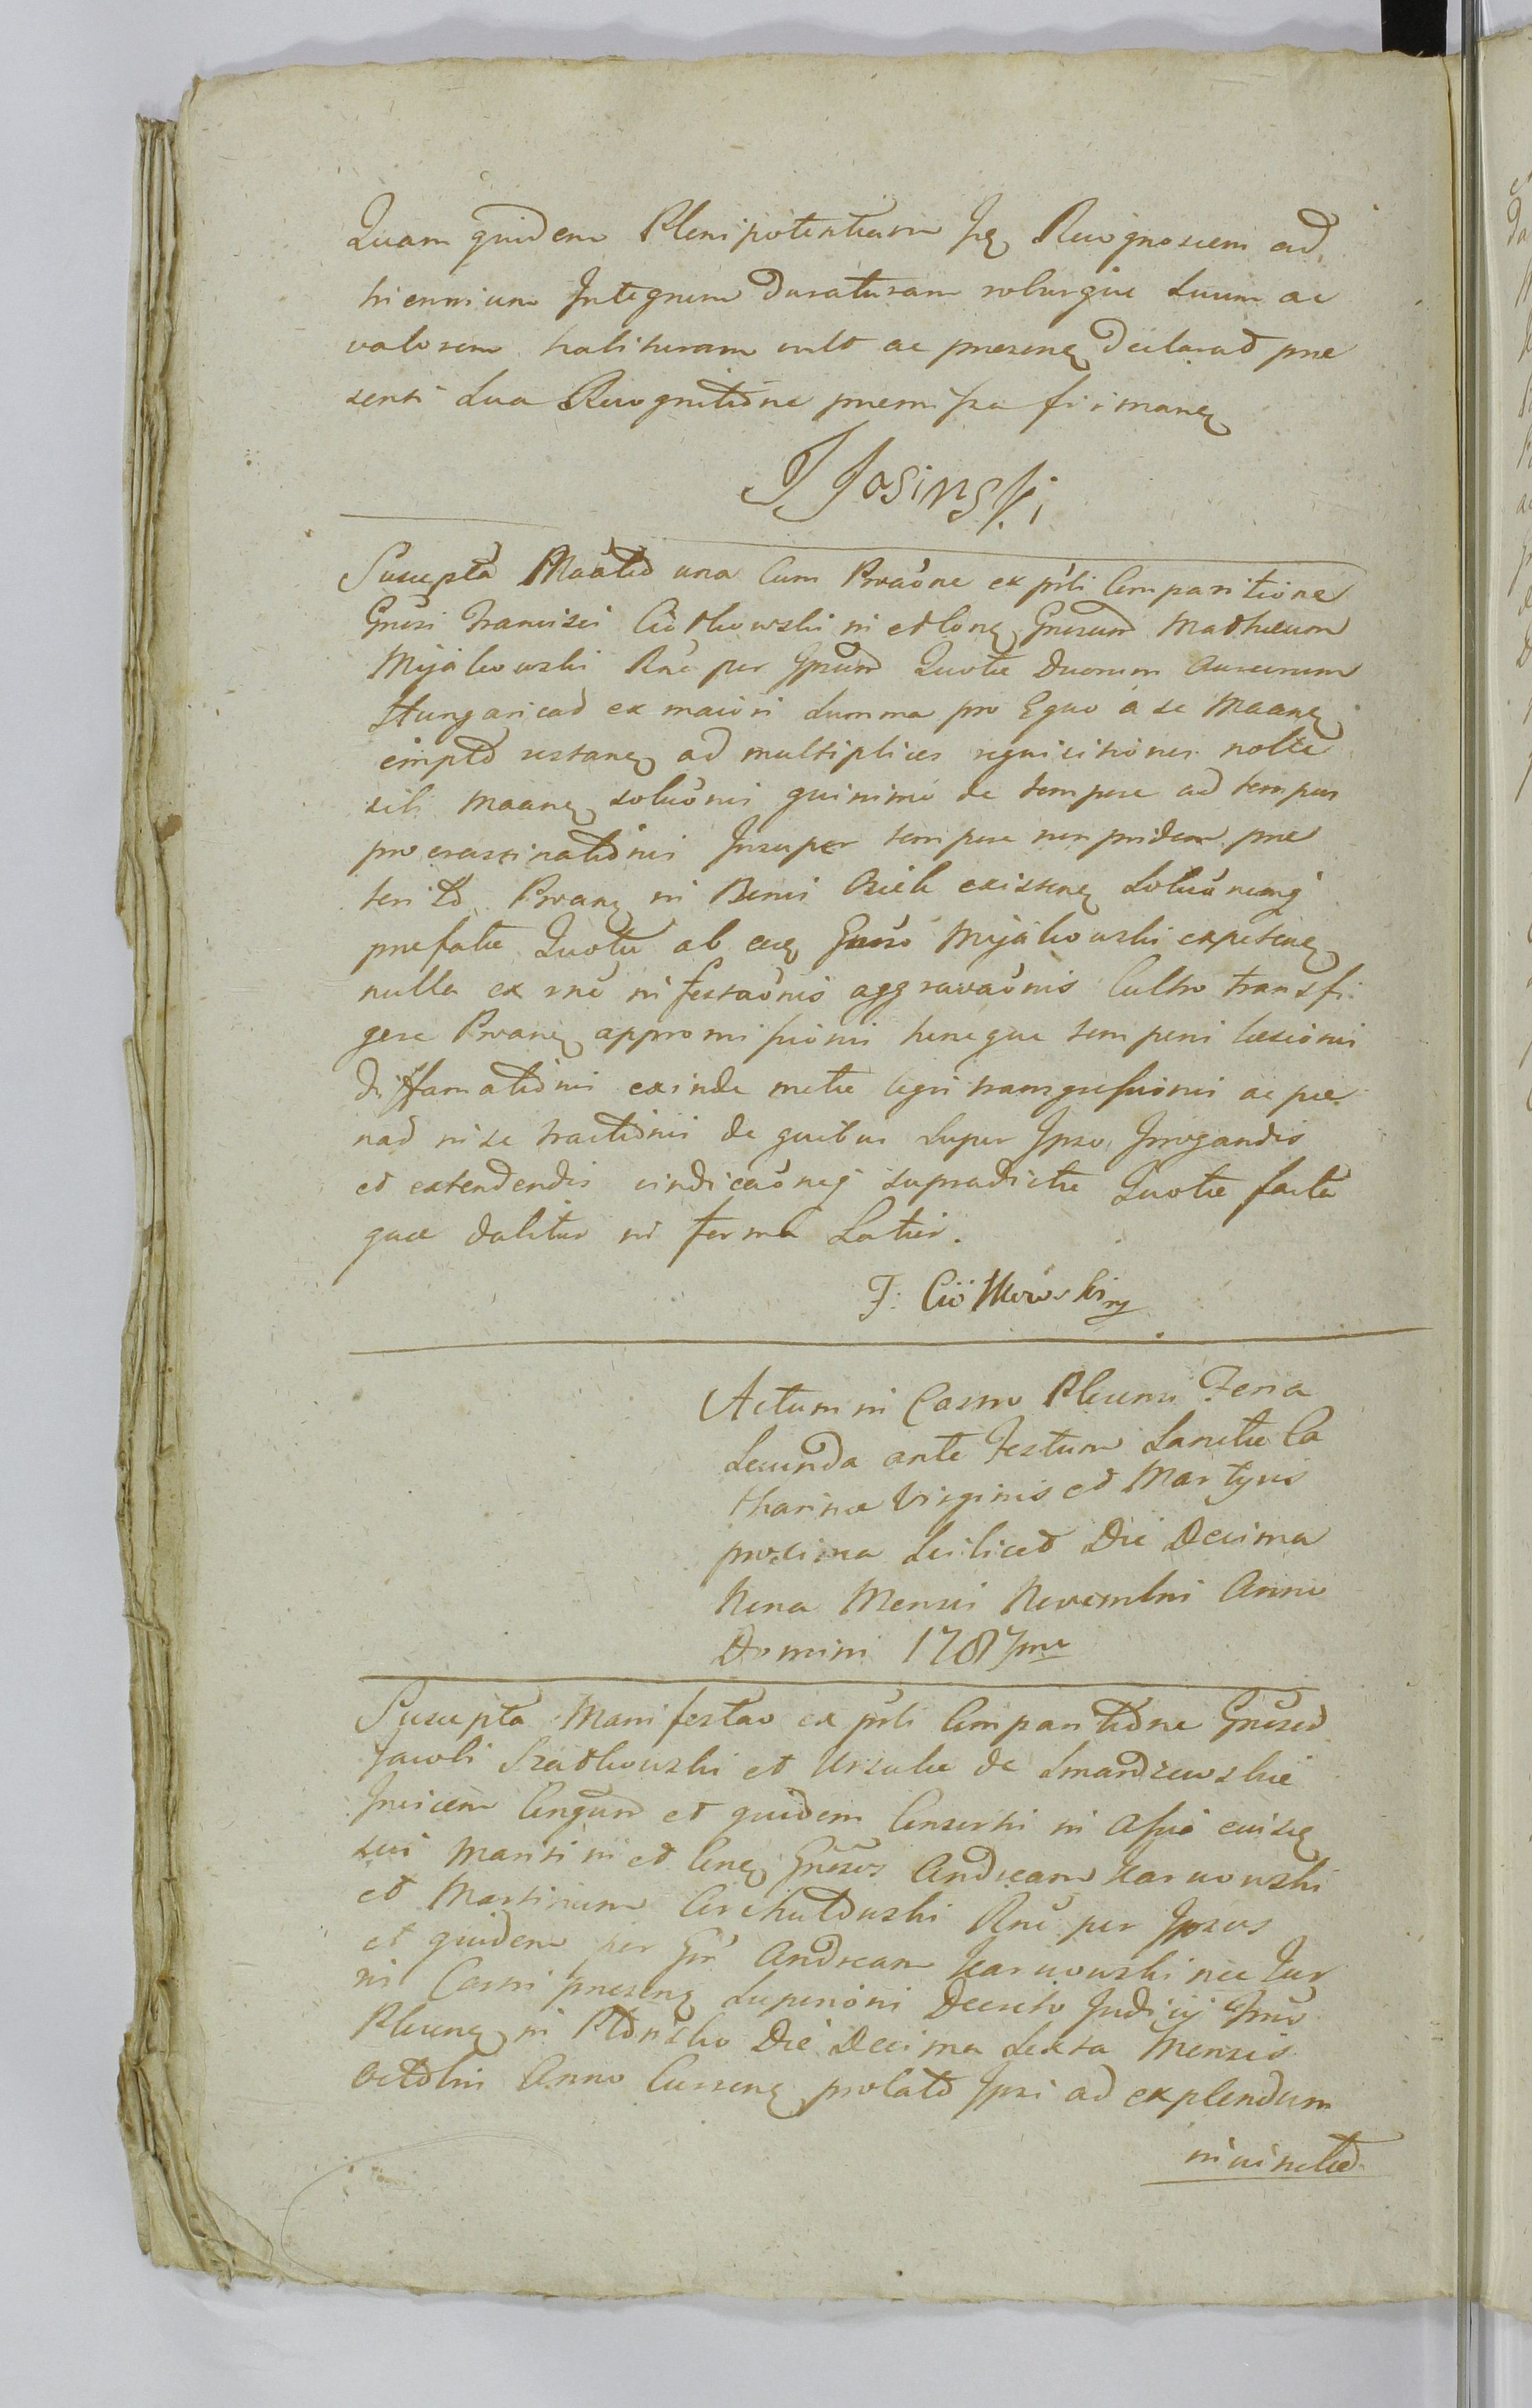 Quam quidem Plenipotentiam Isq Recognoscens ad
triennium Integrum duraturam roburque suum ac
valorem habituram vult ac presenq declarat prae
senti sua Recognitione praemissa firmanq
J Josinski
Suscepta Maātio una cum Prvaōne ex prsti Comparitione
Grūsi Francisci Ciótkowski in et conq Grūsum Mathaeum
Mijakowski Rnē per Ipsum Quotae Duorum Aureorum
Hungaricad ex maiori summa pro Equo a se Maanq
empto restanq ad multiplices requisitiones nolle
sib Maanq soluōnis quinimo de tempore ad tempus
procrastinationis Insuper tempore non pridem prae
terito Prvanq in Bonis existenq soluōnemq
praefatae Quotae ab eoq Grūso Mijakowski expetenq
nulla ex rnē infestaōnis aggravaōnis Cultro transfi
gere Prvanq appromissionis hincque temporis laesionis
diffamationis exinde metae legis transgressionis ac poe
nad in se tractionis de quibus super Ipso Irrogandis
et extendendis vindicaōneq supradictae Quotae facta
quae dabitur in forma Latius.
F: Ciótkowski mp
Actum in Castro Plocensi Feria
Secunda ante Festum Sanctae Ca
tharinae Virginis et Martyris
proxima scilicet Die Decima
Nona Mensis Novembris Anno
Domini 1787mo
Suscepta Manifestao ex prsti Comparitione Grūsod
Jacobi Szadkowski et Ursulae de Smardzewskie
Invicem Congum et quidem Consortis in Assia eiusq
sui Mariti in et Conq Grūsos Andream Karwowski
et Martinum Rnē per Ipsos
et quidem per Gr Andream Karwowski nec Jur
in Castri presenq superioni Decreto Judicij
Plocenq in Płońsko Die Decima Sexta Mensis
Octobris Anno Currenq prolato Ipsi ad explendum